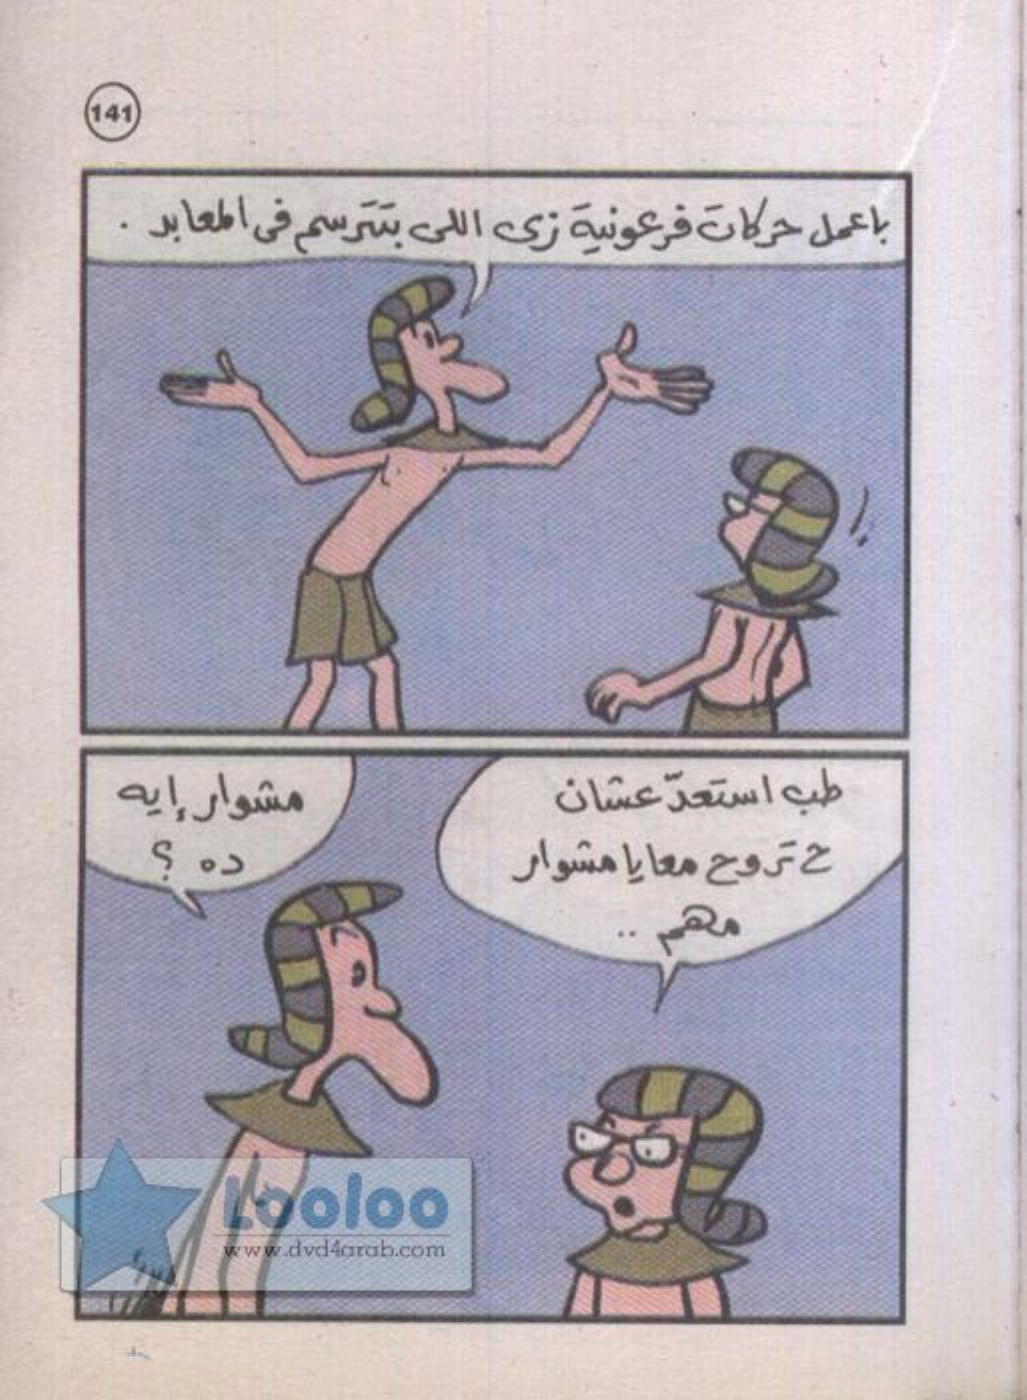 141
باعمل حركات فرعونية زى اللى بتترسم فى المعابد .
طب استعدّ عشان
ح تروح معايا مشوار
مهم ..
مشوار إيه
ده ؟
Looloo
www.dvd4arab.com